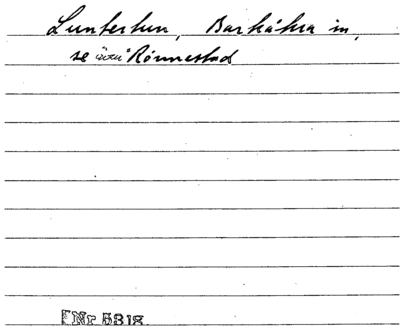 Luntertun, Barkåkra sn,
se även Rönnestad
[Nr 5318.